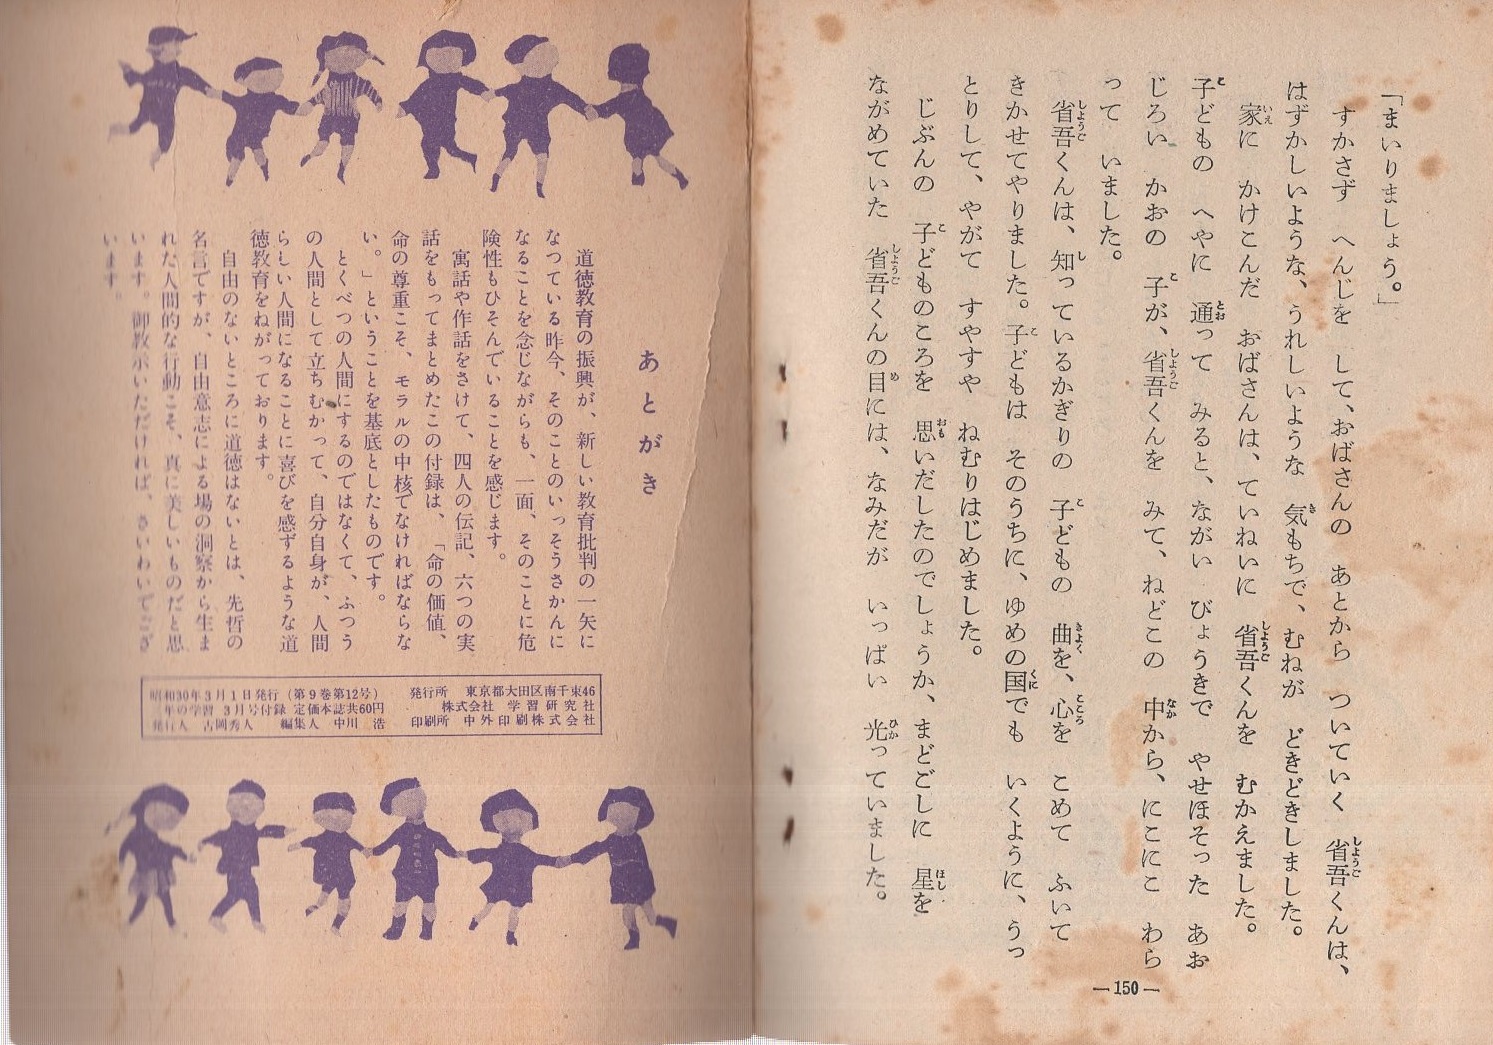 「まいりましょう。」
すかさず へんじを して、おばさんの あとから ついていく 省吾くんは、
はずかしいような、うれしいような 気もちで、むねが どきどきしました。
家に かけこんだ おばさんは、ていねいに 省吾くんを むかえました。
子どもの へやに 通って みると、ながい びょうきで やせほそった あお
じろい かおの 子が、省吾くんを みて、ねどこの 中から、にこにこ わら
って いました。
省吾くんは、知っているかぎりの 子どもの 曲を、心を こめて ふいて
きかせてやりました。子どもは そのうちに、ゆめの国でも いくように、うっ
とりして、やがて すやすや ねむりはじめました。
じぶんの 子どものころを 思いだしたのでしょうか、まどごしに 星を
ながめていた 省吾くんの目には、なみだが いっぱい 光っていました。
—150—
あとがき
道徳教育の振興が、新しい教育批判の一矢に
なっている昨今、そのことのいっそうさかんに
なることを念じながらも、一面、そのことに危
険性もひそんでいることを感じます。
寓話や作話をさけて、四人の伝記、六つの実
話をもってまとめたこの付録は、「命の価値、
命の尊重こそ、モラルの中核でなければならな
い。」ということを基底としたものです。
とくべつの人間にするのではなくて、ふつう
の人間として立ちむかって、自分自身が、人間
らしい人間になることに喜びを感ずるような道
徳教育をねがっております。
自由のないところに道徳はないとは、先哲の
名言ですが、自由意志による場の洞察から生ま
れた人間的な行動こそ、真に美しいものだと思
います。御教示いただければ、さいわいでござ
います。
昭和30年3月1日発行(第9巻第12号) 発行所 東京都大田区南千束46
年の学習 3月号付録 定価本誌共60円 株式会社 学習研究社
発行人 古岡秀人 編集人 中川 浩 印刷所 中外印刷株式会社